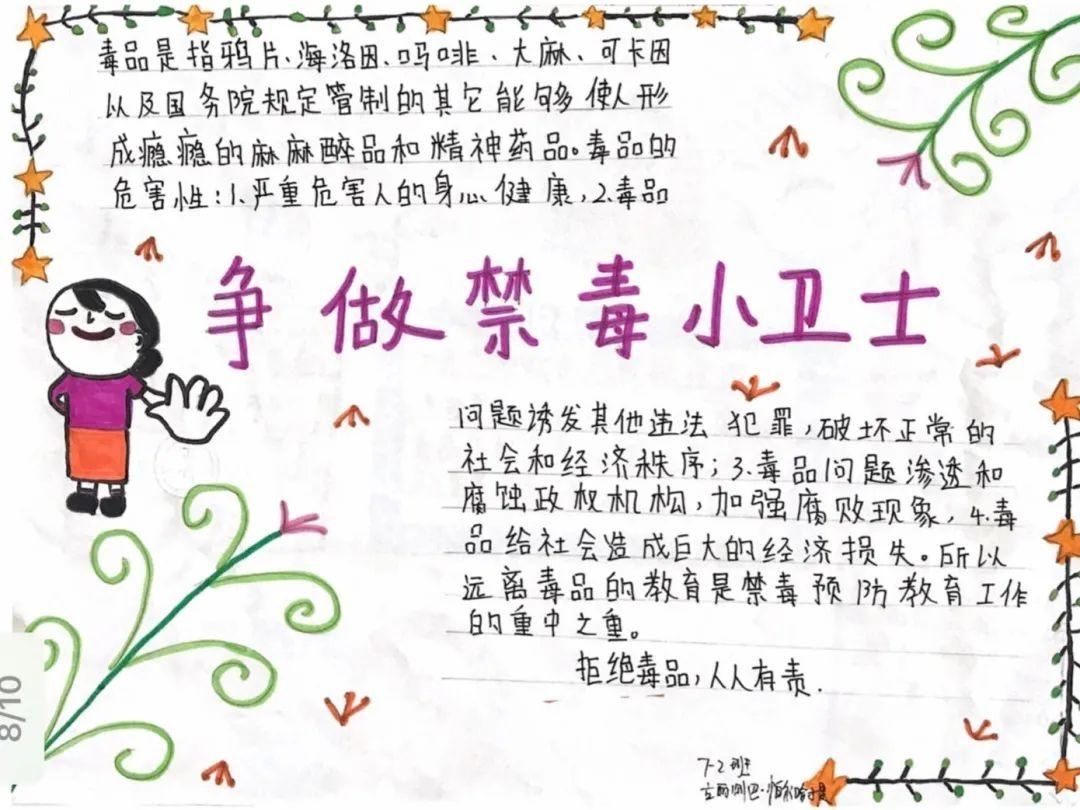 毒品是指鸦片、海洛因、吗啡、大麻、可卡因
以及国务院规定管制的其它能够使人形
成瘾瘾的麻麻醉品和精神药品。毒品的
危害性:1.严重危害人的身心健康,2.毒品
争做禁毒小卫士
问题诱发其他违法犯罪,破坏正常的
社会和经济秩序;3.毒品问题渗透和
腐蚀政权机构,加强腐败现象,4.毒
品给社会造成巨大的经济损失。所以
远离毒品的教育是禁毒预防教育工作
的重中之重。
拒绝毒品,人人有责.
7-2班
8/10